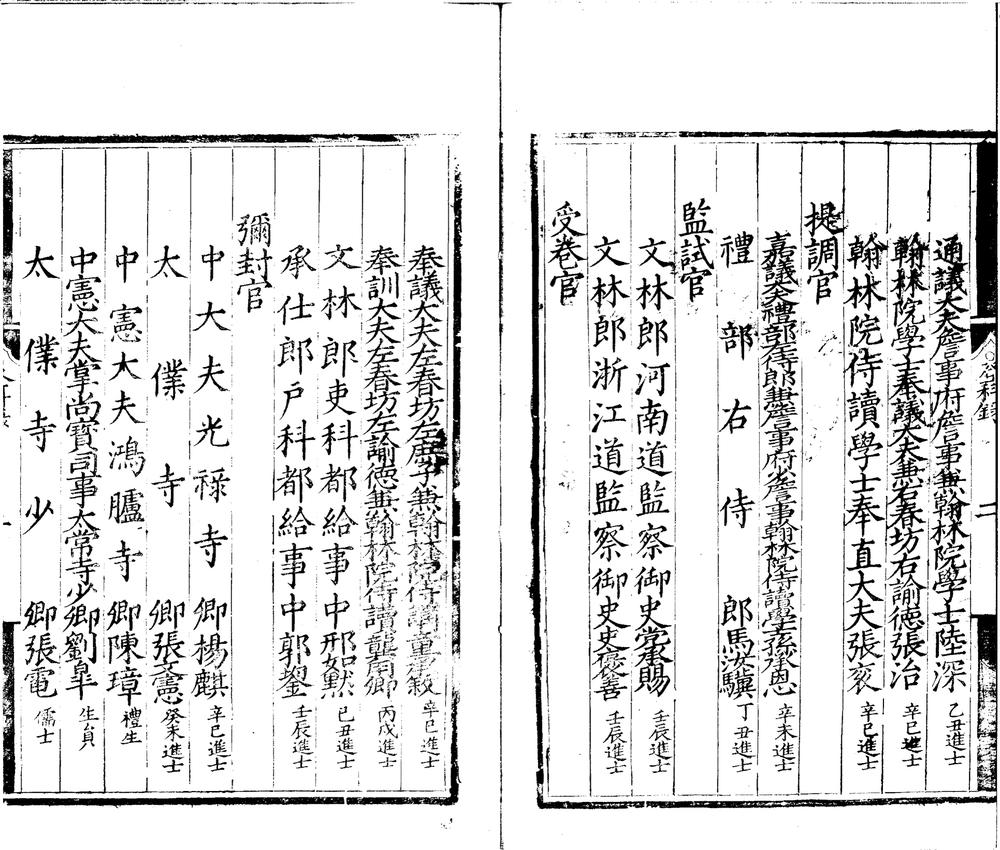 通議大夫詹事府詹事兼翰林院學士陸深乙丑進士
翰林院學士奉議大夫兼右春坊右諭德張治辛巳進士
翰林院侍讀學士奉直大夫張袞辛巳進士
提調官
嘉議大夫禮部左侍郎兼詹事府少詹事翰林院侍讀學士孫承恩辛未進士
禮部右侍郎馬汝驥丁丑進士
監試官
文林郎河南道監察御史党承賜壬辰進士
文林郎浙江道監察御史史褒善壬辰進士
受卷官
奉議大夫左春坊左庶子兼翰林院侍講童承叙辛巳進士
奉訓大夫左春坊左諭德兼翰林院侍讀龔用卿丙戌進士
文林郎吏科都給事中邢如默己丑進士
承仕郎戶科都給事中郭鋆壬辰進士
彌封官
中大夫光祿寺卿楊麒辛巳進士
太僕寺卿張憲癸未進士
中憲大夫鴻臚寺卿陳璋禮生
中憲大夫掌尚寶司事太常寺少卿劉皋生員
太僕寺少卿張電儒士